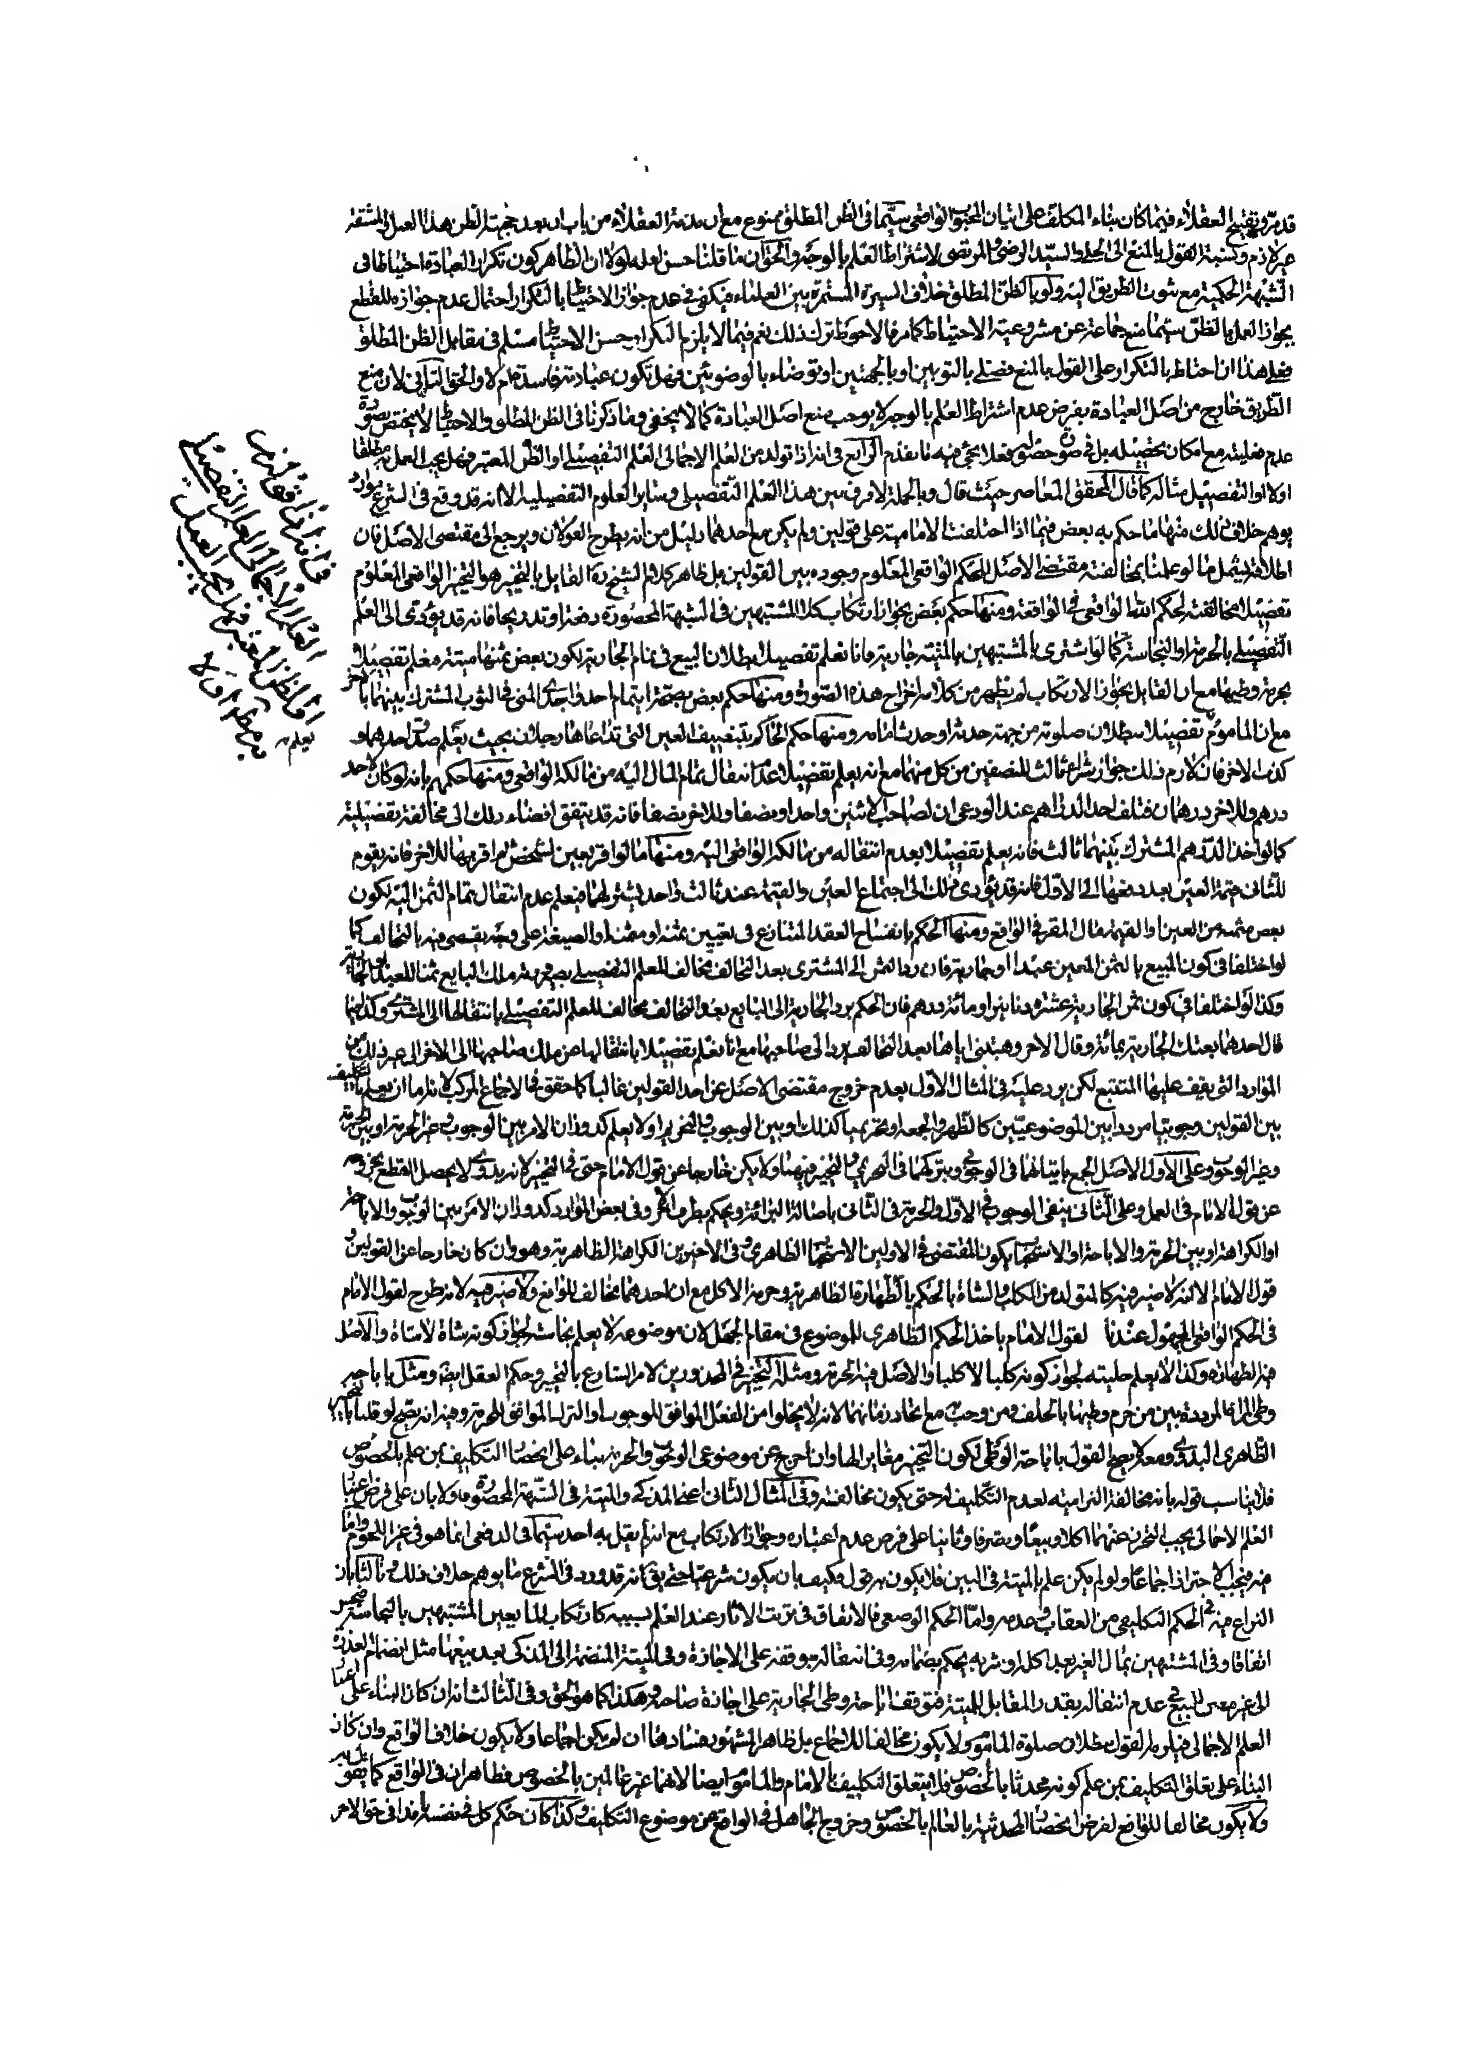 قدمر وتقبيح العقلاء فيما كان بناء المكلف على اتيان المحبوب الواقعى سيّما فى الظن المطلق ممنوع مع ان مذمة العقلاء من باب ان بعد حجية الظن هذا العمل والمشقة
غير لازم ونسبة القول بالمنع الى الحلى والسيّد الرضى والمرتضى لاشتراط العلم بالوجه والحق ان ما قلنا حسن لعله لولا ان الظاهر كون تكرار العبادة احتياطا فى
الشبهة الحكمية مع ثبوت الطريق اليه ولو بالظن المطلق خلاف السيرة المستمرة بين العلماء فيكفى فى عدم جواز الاحتياط بالتكرار احتمال عدم جوازه للقطع
بجواز العمل بالظن سيّما منع جماعة عن مشروعية الاحتياط كما مر فالاحوط ترك ذلك نعم فيما لا يلزم التكرار حسن الاحتياط مسلم فى مقابل الظن المطلق
فعلى هذا ان احتاط بالتكرار على القول بالمنع فصلى بالثوبين او بالجهتين او توضاء بالوضوئين فهل تكون عبادته فاسدة ام لا والحق الثانى لان منع
الطريق خارج من اصل العبادة بفرض عدم اشتراط العلم بالوجه لا يوجب منع اصل العبادة كما لا يخفى وما ذكرنا فى الظن المطلق والاحتياط لا يختص بصورة
عدم فعليته مع امكان تحصيله بل فى صورة حصوله فعلا يجئ فيه ما تقدم الرابع فى انه اذا تولد من العلم الاجمالى العلم التفصيلى او الظن المعتبر فهل يجب العمل به مطلقا
اولا او التفصيل مثاله كما قال المحقق المعاصر حيث قال وبالجملة لا فرق بين هذا العلم التفصيلى وساير العلوم التفصيلية الا انه قد وقع فى الشرع موارد
يوهم خلاف ذلك منها ما حكم به بعض فيما اذا اختلفت الامامية على قولين ولم يكن مع احدهما دليل من انه يطرح القولان ويرجع الى مقتضى الاصل فان
اطلاقه يشمل ما لو علمنا بمخالفة مقتضى الاصل للحكم الواقعى المعلوم وجوده بين القولين بل ظاهر كلام الشيخ ره القايل بالتخيير هو التخيير الواقعى المعلوم
تفصيلا مخالفته لحكم الله الواقعى فى الواقعة ومنها حكم بعض بجواز ارتكاب كلا المشتبهين فى الشبهة المحصورة دفعة او تدريجا فانه قد يؤدى الى العلم
التفصيلى بالحرمة او النجاسة كما لو اشترى بالمشتبهين بالميتة جارية فانا نعلم تفصيلا بطلان البيع فى تمام الجارية لكون بعض ثمنها ميتة فعلم تفصيلا
بحرمة وطيها مع ان القايل بجواز الارتكاب لم يظهر من كلامه اخراج هذه الصورة ومنها حكم بعض بصحة ايتمام احد واجدى المنى فى الثوب المشترك بينهما بالاخر
مع ان الماموم يعلم تفصيلا بطلان صلوته من جهة حدثه او حدث امامه ومنها حكم الحاكم بتنصيف العين التى تداعاها رجلان بحيث يعلم صدق احدهما و
كذب الاخر فان لازم ذلك جواز شراء ثالث للنصفين من كل منهما مع انه يعلم تفصيلا عدم انتقال تمام المال اليه من مالكه الواقعى ومنها حكمهم بانه لو كان لاحد
درهم وللاخر درهمان فتلف احد الدراهم عند الودعى ان لصاحب الاثنين واحدا ونصفا وللاخر نصفا فانه قد يتفق افضاء ذلك الى مخالفة تفصيلية
كما لو اخذ الدرهم المشترك بينهما ثالث فانه يعلم تفصيلا بعدم انتقاله من مالكه الواقعى اليه ومنها ما لو اقر بعين لشخص ثم اقر بها للاخر فانه يقوم
للثانى قيمة العين بعد دفعها الى الاول فانه قد يؤدى ذلك الى اجتماع العين والقيمة عند ثالث واحد يشترى بهما فيعلم عدم انتقال تمام الثمن اليه لكون
بعض مثمنه من العين او القيمة مال المقر فى الواقع ومنها الحكم بانفساخ العقد المتنازع فى تعيين ثمنه او مثمنه او الصيغة على وجه يقضى فيه بالتحالف كما
لو اختلفا فى كون المبيع بالثمن المعين عبدا او جارية فان رد الثمن الى المشترى بعد التحالف مخالف للعلم التفصيلى بصيرورته ملك البايع ثمنا للعبد او الجارية
وكذا لو اختلفا فى كون ثمن الجارية عشرة دنانير او مائة درهم فان الحكم برد الجارية الى البايع بعد التحالف مخالف للعلم التفصيلى بانتقالها الى المشترى وكذا لو
قال احدهما بعتك الجارية بمائة وقال الاخر وهبتنى اياها بعد التحالف يرد الى صاحبها مع انا نعلم تفصيلا بانتقالها من ملك صاحبها الى الاخر الى غير ذلك من
الموارد التى يقف عليها المتتبع لكن يرد عليه فى المثال الاول بعدم خروج مقتضى الاصل عن احد القولين غالبا كما حقق فى الاجماع المركب لانه اما ان يعلم بالتكليف
بين القولين وجوبيا مرددا بين الموضوعين كالظهر والجمعة او تحريميا كذلك او بين الوجوب والتحريم او لا يعلم كدوران الامر بين الوجوب وغير الحرمة او بين الحرمة
وغير الوجوب وعلى الاول الاصل الجمع باتيانهما فى الوجوب وبتركهما فى التحريم والتخيير فيهما ولا يكن خارجا عن قول الامام حتى فى التخيير لانه بدوى لا يحصل القطع بخروجه
عن قول الامام فى العمل وعلى الثانى ينفى الوجوب فى الاول والحرمة فى الثانى باصالة البرائة ويحكم بطرف الاخر وفى بعض الموارد كدوران الامر بين الوجوب والاباحة
او الكراهة او بين الحرمة والاباحة او الاستحباب يكون المقتضى فى الاولين الاستحباب الظاهرى وفى الاخيرين الكراهة الظاهرية وهو وان كان خارجا عن القولين و
قول الامام الا انه لا ضير فيه كالمتولد من الكلب والشاة بالحكم بالطهارة الظاهرية وحرمة الاكل مع ان احدهما مخالف للواقع ولا ضير فيه لانه طرح لقول الامام
فى الحكم الواقعى المجهول عندنا لقول الامام باخذ الحكم الظاهرى للموضوع فى مقام الجهل لان موضوعه لا يعلم نجاسته لجواز كونه شاة لا شاة والاصل
فيه الطهارة وكذا لا يعلم حليته لجواز كونه كلبا لا كلبا والاصل فيه الحرمة ومثله التخيير فى المحذورين لامر الشارع بالتخيير وحكم العقل ايضا ومثله باباحة
وطى المراة المرددة بين من حرم وطيها بالحلف ومن وجب مع اتحاد زمانهما لانه لا يخلوا من الفعل الموافق للوجوب او الترك الموافق للحرمة وفيه انه يصح لو قلنا بالتخيير
الظاهرى البدوى ومعه لا يصح القول باباحة الوطى لكون التخيير مغايرا لها وان اخرج عن موضوعى الوجوب والحرمة بناء على اختصاص التكليف بمن علم بالخصوص
فلا يناسب قوله بانه مخالفة التزامية لعدم التكليف له حتى يكون مخالفته وفى المثال الثانى اعنى المذكى والميتة فى الشبهة المحصورة اولا بان على فرض اعتبار
العلم الاجمالى يجب التحرز عنهما اكلا وبيعا وتصرفا وثانيا على فرض عدم اعتباره وجواز الارتكاب مع انه لم يقل به احد سيّما فى الدفعى انما هو فى غير اللحوم واما
فيه فيجب الاحتراز اجماعا ولو لم يكن علم بالميتة فى البين فلا يكون به قول فكيف بان يكون شرعيا حتى يق انه قد ورد فى الشرع ما يوهم خلاف ذلك وثالثا بان
النزاع فيه فى الحكم التكليفى من العقاب وعدمه واما الحكم الوضعى فالاتفاق فى ترتب الاثار عند العلم بسببه كارتكاب المايعين المشتبهين بالنجاسة فنجس
اتفاقا وفى المشتبهين بمال الغير بعد اكله او شربه يحكم بضمانه وفى انتقاله بتوقفه على الاجازة وفى الميتة المنضمة الى المذكى بعد بيعها مثل انضمام العذرة
الى غيرها من المبيع فى عدم انتقاله بقدر المقابل للميتة فتوقف اباحة وطى الجارية على اجازة صاحبه وهكذا كما هو الحق وفى الثالث انه ان كان البناء على اعتبار
العلم الاجمالى فيلزم القول ببطلان صلوة الماموم ولا يكون مخالفا للاجماع بل ظاهر المشهور فسادها ان لم يكن اجماعا ولا يكون خلاف الواقع وان كان
البناء على تعلق التكليف بمن علم كونه محدثا بالخصوص فلا يتعلق التكليف بالامام والماموم ايضا لانهما غير عالمين بالخصوص فطاهران فى الواقع كما يقول به
ولا يكون مخالفا للواقع لفرض اختصاص المحدثية بالعالم بالخصوص وخروج الجاهل فى الواقع عن موضوع التكليف وكذا كان حكم كل فى نفسه نافذا فى حق الاخر
فى انه اذا تولد من
العلم الاجمالى العلم التفصيلى
او الظن المعتبر فهل يجب العمل
به مطلقا او لا